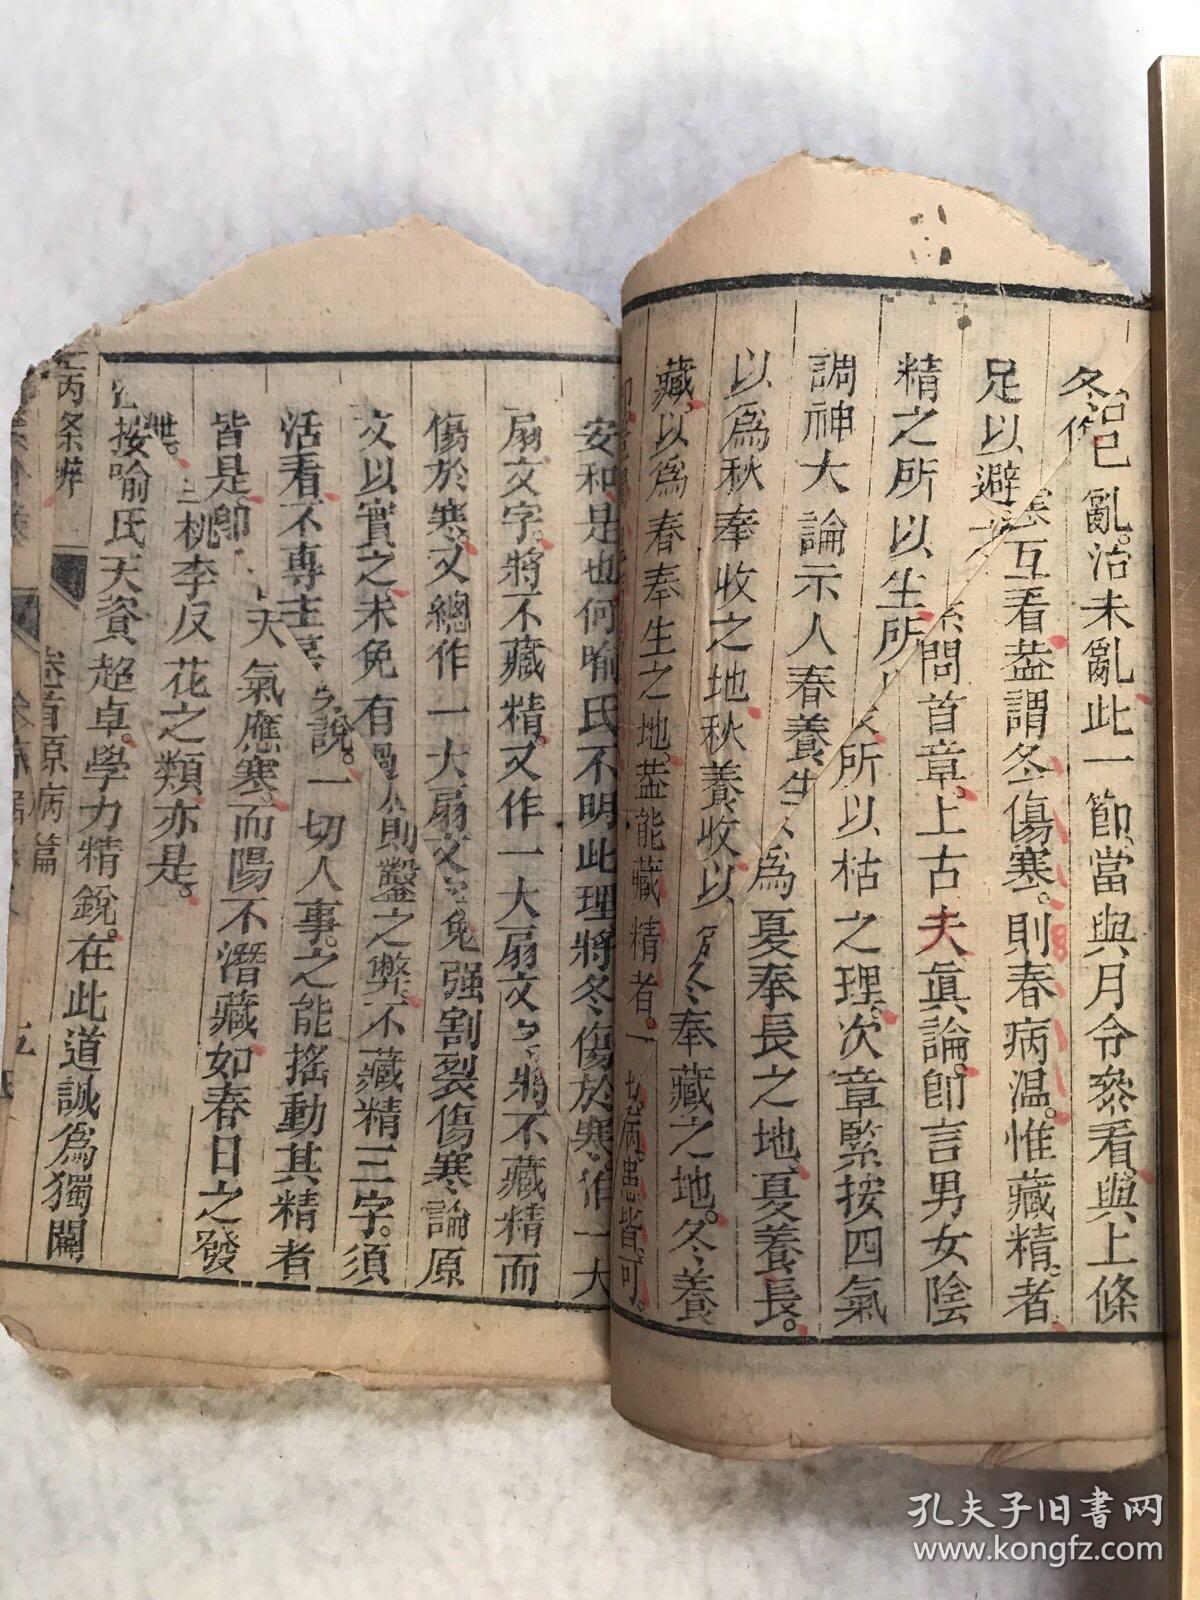 治已亂。治未亂此一節。當與月令參看。與上條
冬傷寒互看。葢謂冬傷寒。則春病温。惟藏精者
足以避之。素問首章。上古夫眞論。卽言男女陰
精之所以生所以枯之理。次章緊按四氣
調神大論示人春養生以爲夏奉長之地。夏養長。
以爲秋奉收之地秋養收以爲冬奉藏之地。冬養
藏以爲春奉生之地。葢能藏精者。一切病患皆可
安和是也何喻氏不明此理將冬傷於寒。作一大
扇文字。將不藏精。又作一大扇文字將不藏精而
傷於寒。又總作一大扇文 免强割裂傷寒論原
文以實之。未免有 則鑿之弊不藏精三字。須
活看。不專主 說。一切人事。之能搖動其精者
皆是卽 天氣應寒。而陽不潛藏。如春日之發
泄。 桃李反花之類亦是。
按喻氏天資超卓。學力精銳。在此道誠爲獨闢
病条辨
卷首原病篇
孔夫子旧书网
www.kongfz.com